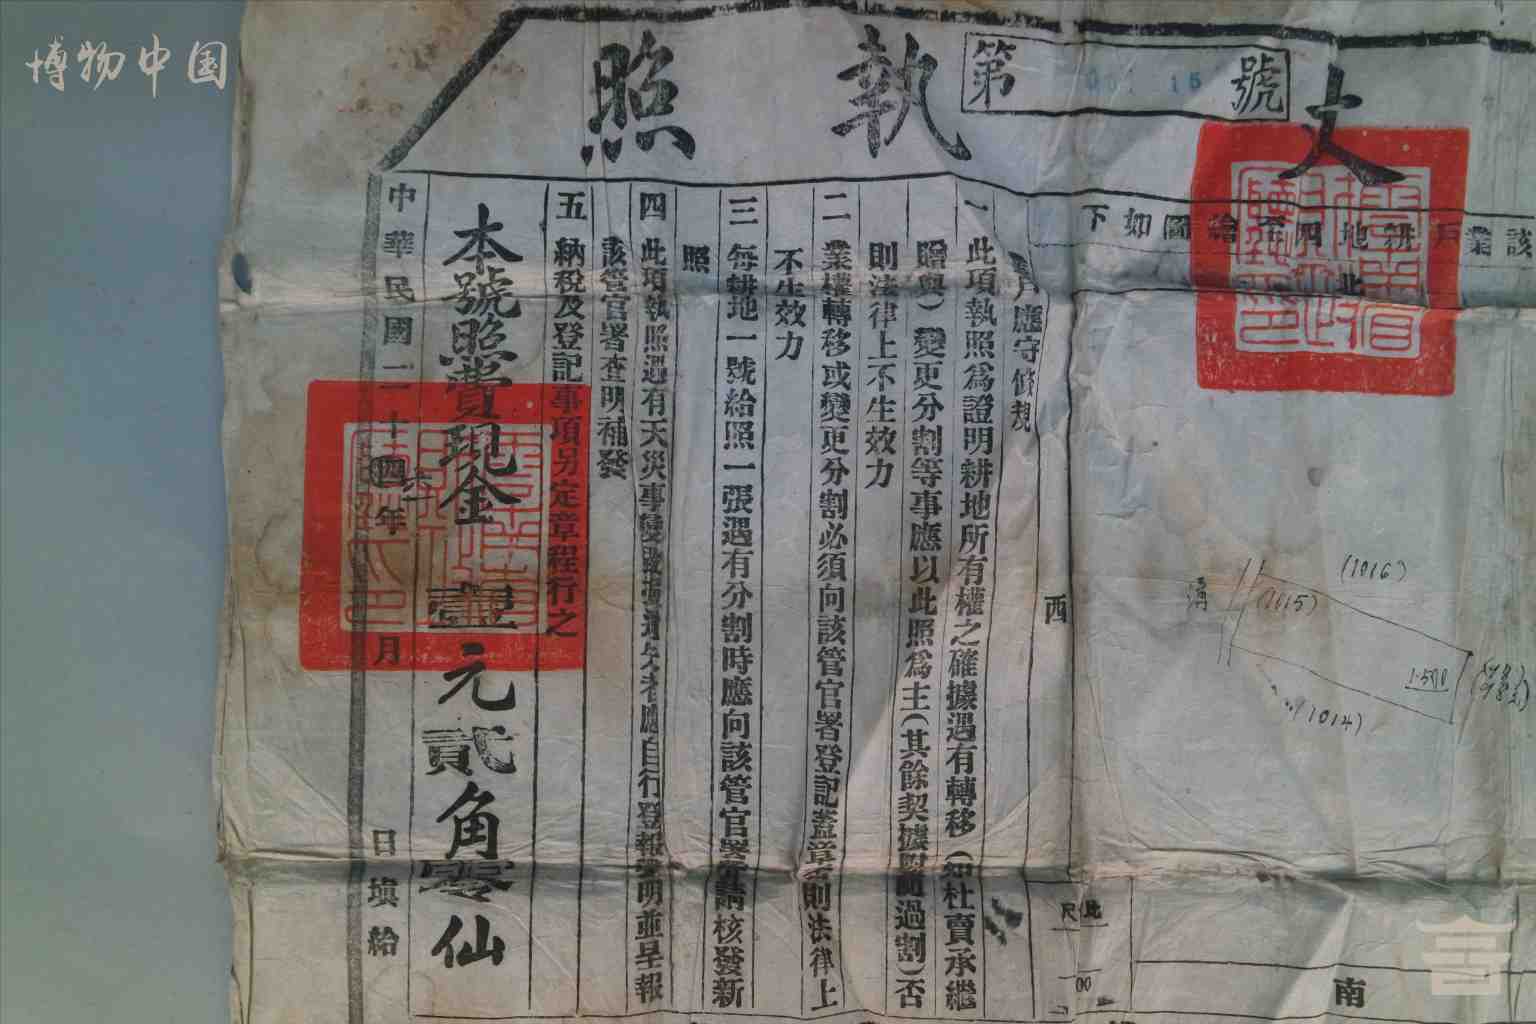 博物中国
丈
執
照
第 001 15 號
該業戶耕地四至繪圖如下
北
(1016)
(1015)
溝
1.500
(1014)
西
南
比尺
戶應守條規
一 此項執照爲證明耕地所有權之確據遇有轉移(如杜賣承繼
贈與)變更分割等事應以此照爲主(其餘契據附隨過割)否
則法律上不生效力
二 業權轉移或變更分割必須向該管官署登記蓋章否則法律上
不生效力
三 每耕地一號給照一張遇有分割時應向該管官署聲請核發新
照
四 此項執照遇有天災事變毀壞遺失者應自行登報聲明並呈報
該管官署查明補發
五 納稅及登記事項另定章程行之
本號照費現金壹元貳角零仙
中華民國二十四年 月 日填給